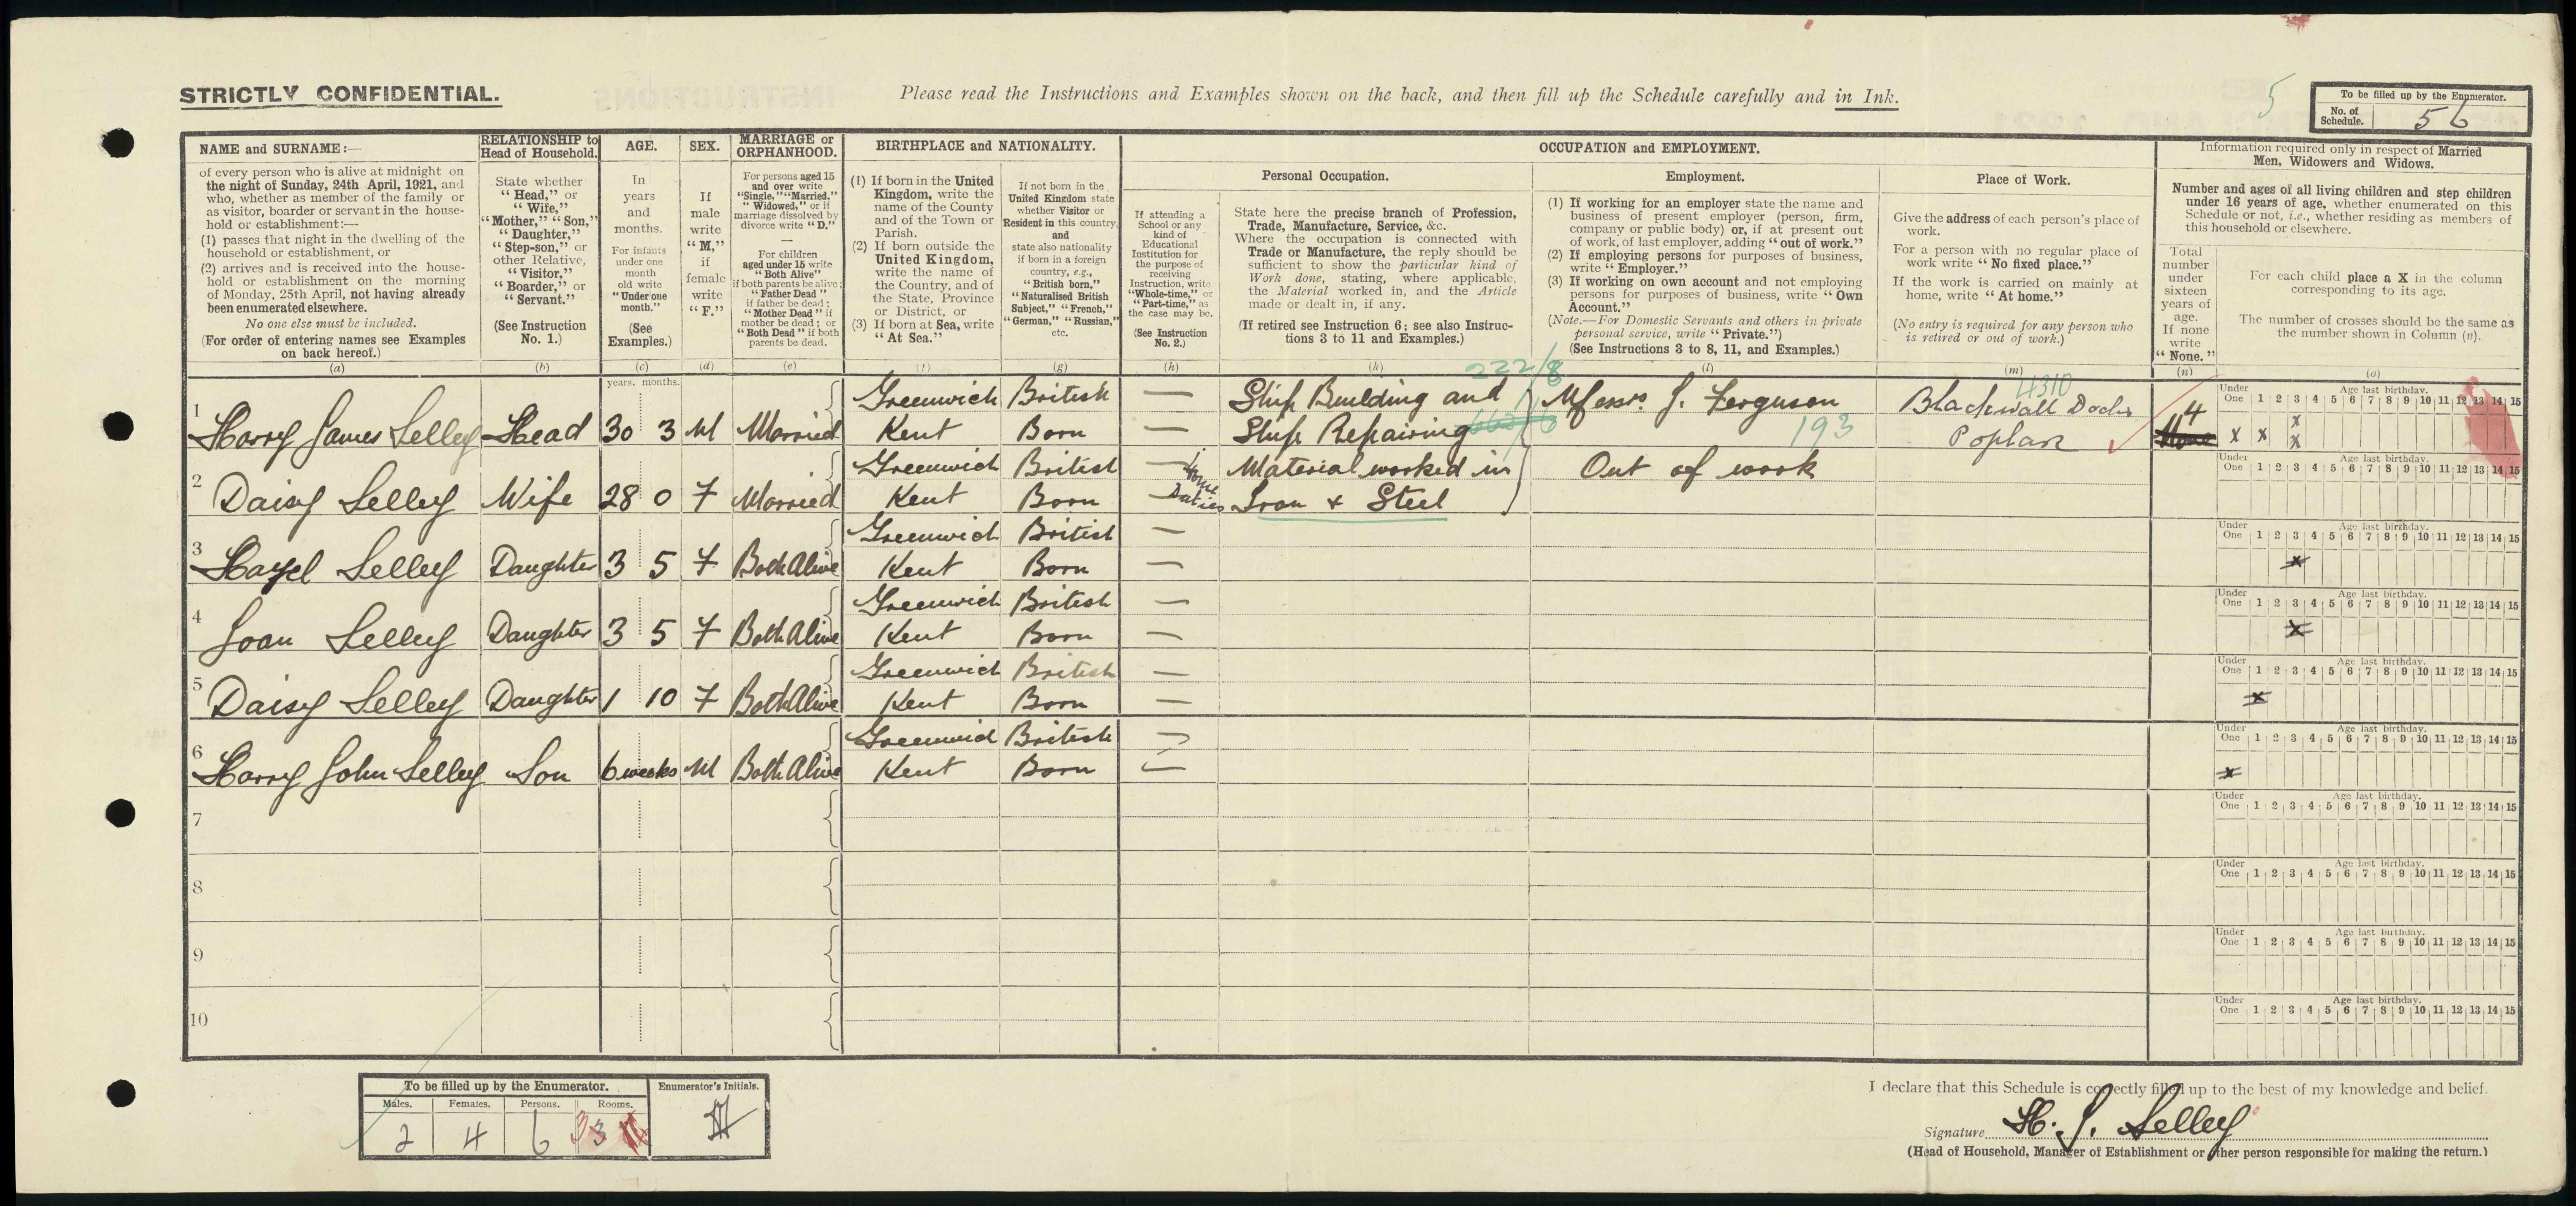 STRICTLY CONFIDENTIAL.
Please read the Instructions and Examples shown on the back, and then fill up the Schedule carefully and in Ink.
5
To be filled up by the Enumerator.
No. of Schedule. 56
NAME and SURNAME:—
of every person who is alive at midnight on
the night of Sunday, 24th April, 1921, and
who, whether as member of the family or
as visitor, boarder or servant in the house-
hold or establishment:—
(1) passes that night in the dwelling of the
household or establishment, or
(2) arrives and is received into the house-
hold or establishment on the morning
of Monday, 25th April, not having already
been enumerated elsewhere.
No one else must be included.
(For order of entering names see Examples
on back hereof.)
(a)
RELATIONSHIP to
Head of Household.
State whether
"Head," or
"Wife,"
"Mother," "Son,"
"Daughter,"
"Step-son," or
other Relative,
"Visitor,"
"Boarder," or
"Servant."
(See Instruction
No. 1.)
(b)
AGE.
In
years
and
months.
For infants
under one
month
old write
"Under one
month."
(See
Examples.)
(c)
SEX.
If
male
write
"M,"
if
female
write
"F."
(d)
MARRIAGE or
ORPHANHOOD.
For persons aged 15
and over write
"Single," "Married,"
"Widowed," or if
marriage dissolved by
divorce write "D."
—
For children
aged under 15 write
"Both Alive"
if both parents be alive;
"Father Dead"
if father be dead;
"Mother Dead" if
mother be dead; or
"Both Dead" if both
parents be dead.
(e)
BIRTHPLACE and NATIONALITY.
(1) If born in the United
Kingdom, write the
name of the County
and of the Town or
Parish.
(2) If born outside the
United Kingdom,
write the name of
the Country, and of
the State, Province
or District, or
(3) If born at Sea, write
"At Sea."
(f)
If not born in the
United Kingdom state
whether Visitor or
Resident in this country,
and
state also nationality
if born in a foreign
country, e.g.,
"British born,"
"Naturalised British
Subject," "French,"
"German," "Russian,"
etc.
(g)
OCCUPATION and EMPLOYMENT.
If attending a
School or any
kind of
Educational
Institution for
the purpose of
receiving
Instruction, write
"Whole-time," or
"Part-time," as
the case may be.
(See Instruction
No. 2.)
(h)
Personal Occupation.
State here the precise branch of Profession,
Trade, Manufacture, Service, &c.
Where the occupation is connected with
Trade or Manufacture, the reply should be
sufficient to show the particular kind of
Work done, stating, where applicable,
the Material worked in, and the Article
made or dealt in, if any.
(If retired see Instruction 6; see also Instruc-
tions 3 to 11 and Examples.)
(k)
Employment.
(1) If working for an employer state the name and
business of present employer (person, firm,
company or public body) or, if at present out
of work, of last employer, adding "out of work."
(2) If employing persons for purposes of business,
write "Employer."
(3) If working on own account and not employing
persons for purposes of business, write "Own
Account."
(Note.—For Domestic Servants and others in private
personal service, write "Private.")
(See Instructions 3 to 8, 11, and Examples.)
(l)
Place of Work.
Give the address of each person's place of
work.
For a person with no regular place of
work write "No fixed place."
If the work is carried on mainly at
home, write "At home."
(No entry is required for any person who
is retired or out of work.)
(m)
Information required only in respect of Married
Men, Widowers and Widows.
Number and ages of all living children and step children
under 16 years of age, whether enumerated on this
Schedule or not, i.e., whether residing as members of
this household or elsewhere.
Total
number
under
sixteen
years of
age.
If none
write
"None."
(n)
For each child place a X in the column
corresponding to its age.
The number of crosses should be the same as
the number shown in Column (n).
(o)
years. months.
222/8
4310
193
Under One 1 2 3 4 5 6 7 8 9 10 11 12 13 14 15
Age last birthday.
1 Harry James Selley Head 30 3 M Married Greenwich Kent British Born — — Ship Building and Ship Repairing Messrs J. Ferguson Blackwall Docks Poplar 4 None X X X X
2 Daisy Selley Wife 28 0 F Married Greenwich Kent British Born — — Home Duties Material worked in Iron & Steel Out of work
Under One 1 2 3 4 5 6 7 8 9 10 11 12 13 14 15
Age last birthday.
3 Hazel Selley Daughter 3 5 F Both Alive Greenwich Kent British Born — — X
Under One 1 2 3 4 5 6 7 8 9 10 11 12 13 14 15
Age last birthday.
4 Joan Selley Daughter 3 5 F Both Alive Greenwich Kent British Born — — X
Under One 1 2 3 4 5 6 7 8 9 10 11 12 13 14 15
Age last birthday.
5 Daisy Selley Daughter 1 10 F Both Alive Greenwich Kent British Born — — X
Under One 1 2 3 4 5 6 7 8 9 10 11 12 13 14 15
Age last birthday.
6 Harry John Selley Son 6 weeks M Both Alive Greenwich Kent British Born — — X
Under One 1 2 3 4 5 6 7 8 9 10 11 12 13 14 15
Age last birthday.
7
Under One 1 2 3 4 5 6 7 8 9 10 11 12 13 14 15
Age last birthday.
8
Under One 1 2 3 4 5 6 7 8 9 10 11 12 13 14 15
Age last birthday.
9
Under One 1 2 3 4 5 6 7 8 9 10 11 12 13 14 15
Age last birthday.
10
Under One 1 2 3 4 5 6 7 8 9 10 11 12 13 14 15
Age last birthday.
To be filled up by the Enumerator.
Males. Females. Persons. Rooms.
2 4 6 3
Enumerator's Initials.
I declare that this Schedule is correctly filled up to the best of my knowledge and belief.
Signature H. J. Selley
(Head of Household, Manager of Establishment or other person responsible for making the return.)